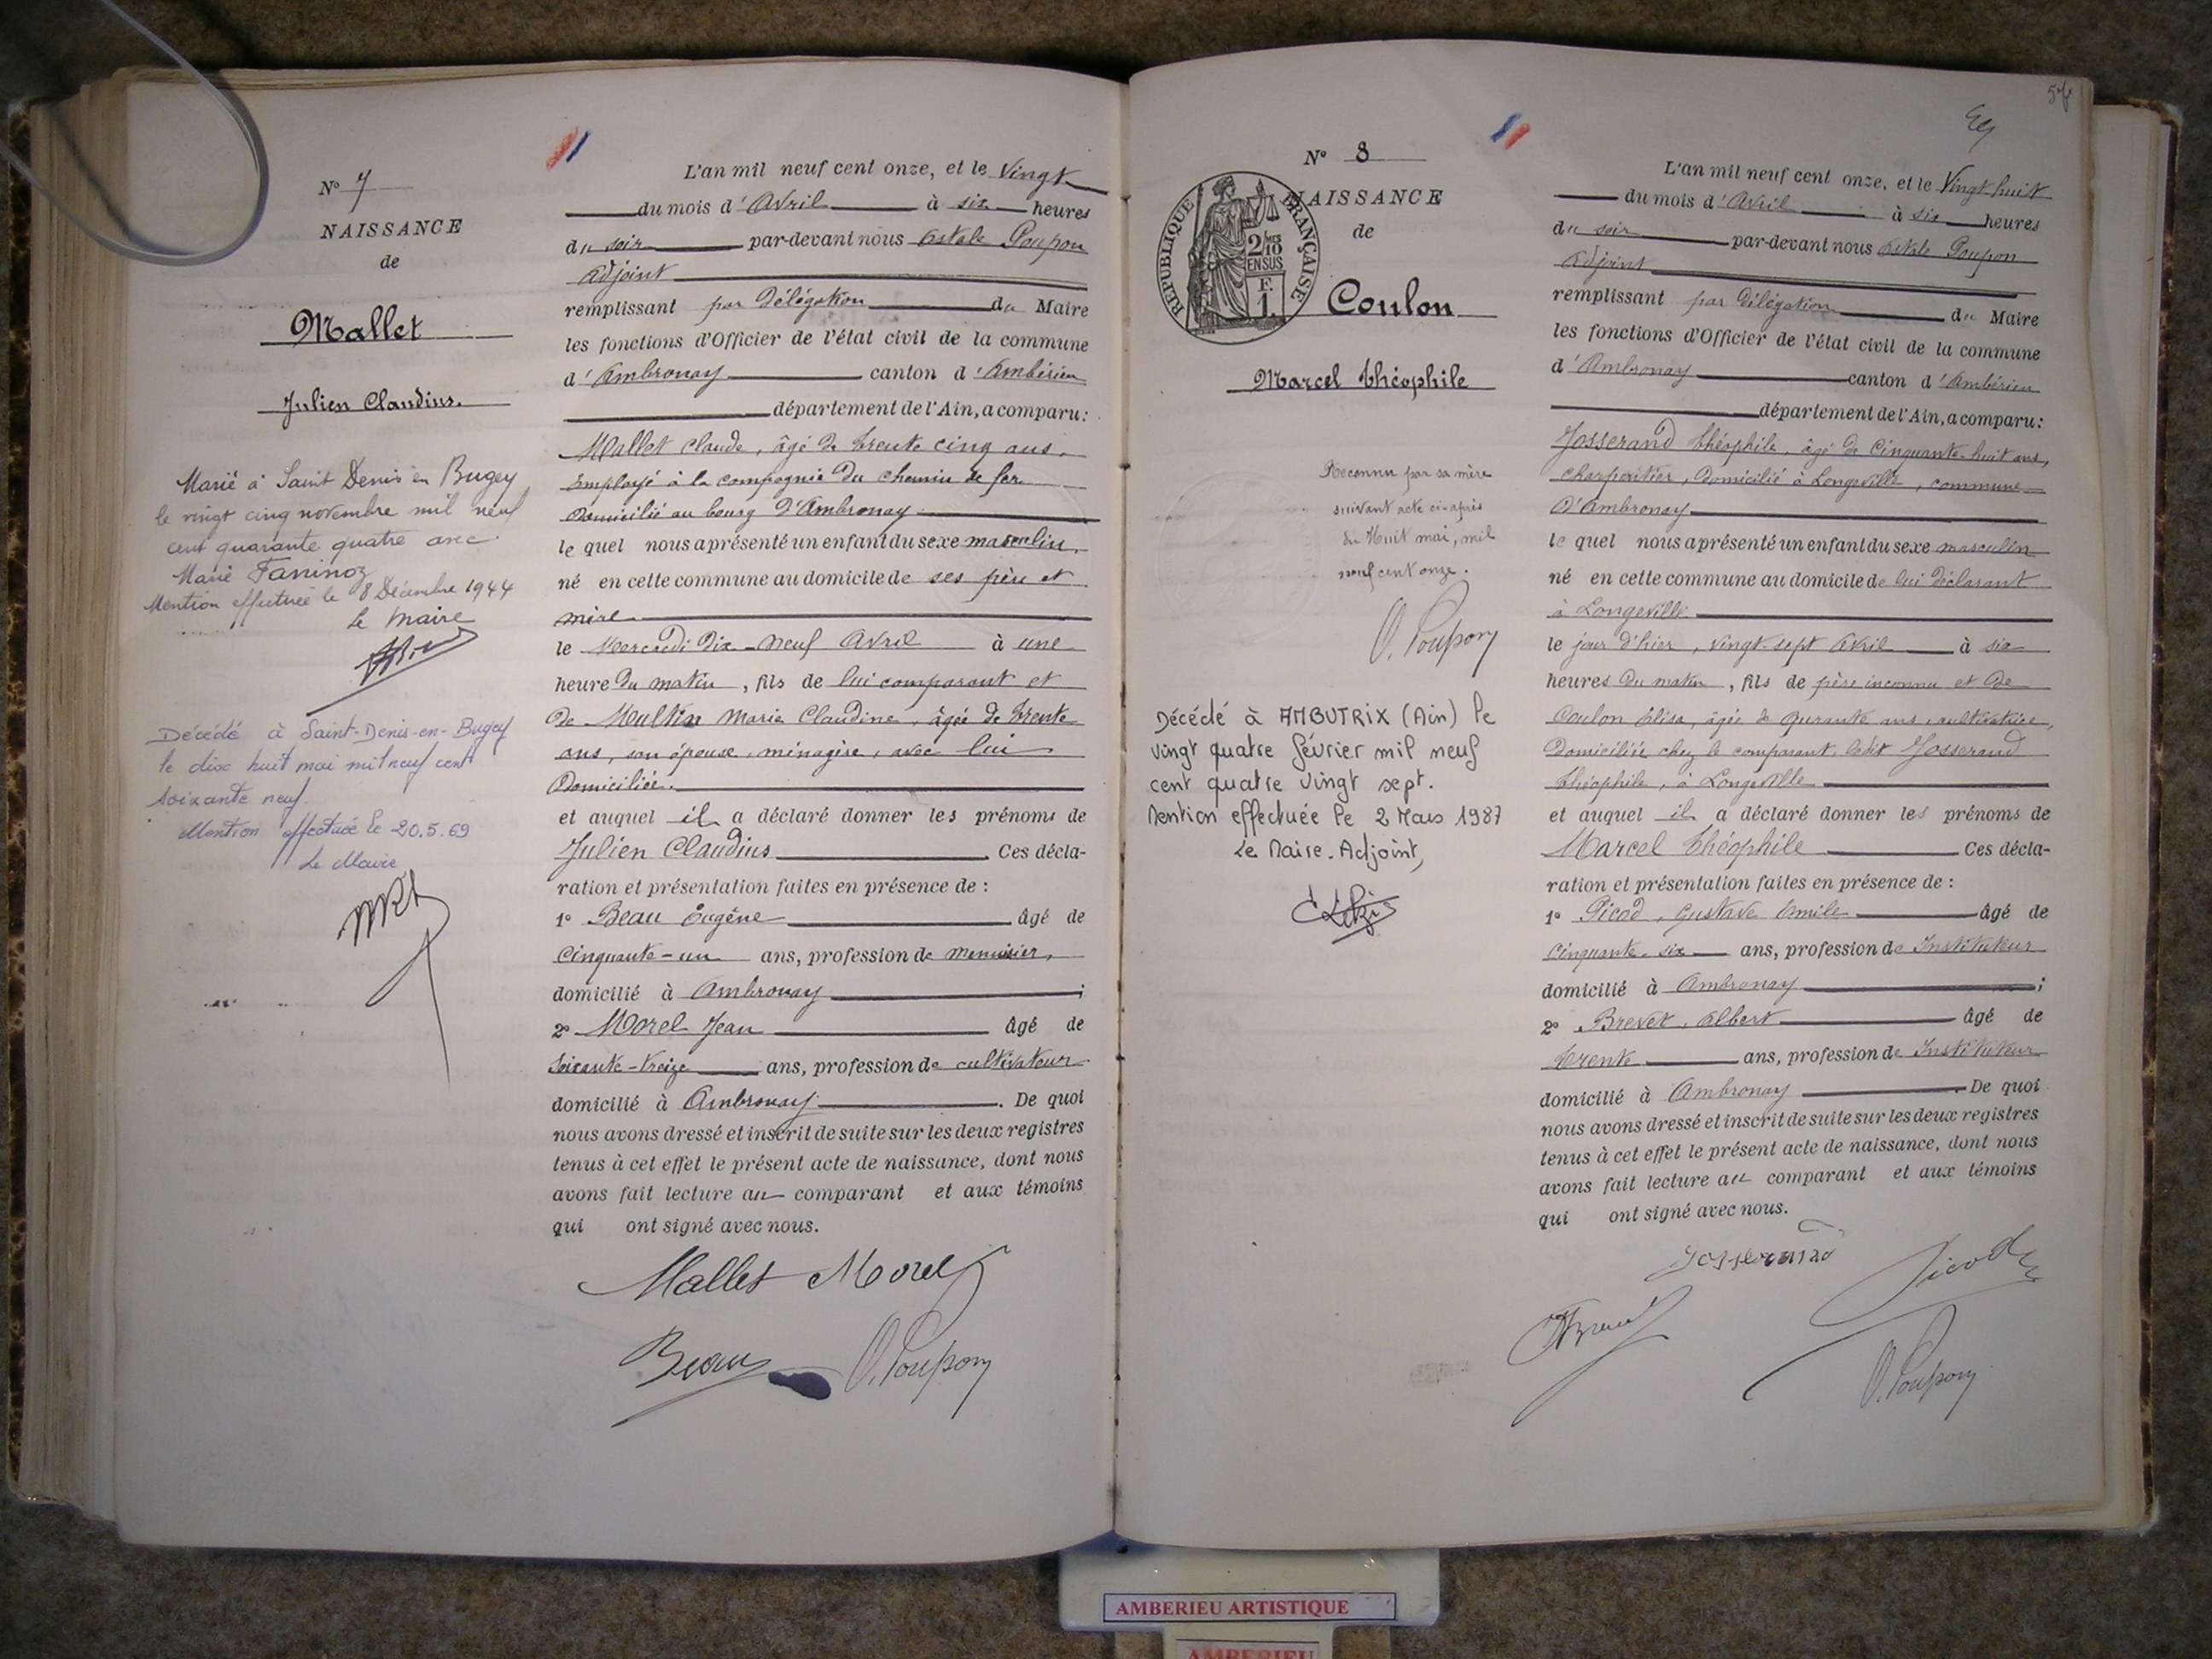 Nº 7
NAISSANCE
de
Mallet
Julien Claudius.
Marié à Saint Denis en Bugey
le vingt cinq novembre mil neuf
cent quarante quatre avec
Marie Faninoz
Mention effectuée le 8 Décembre 1944
Le Maire
Décédé à Saint-Denis-en-Bugey
le dix huit mai mil neuf cent
soixante neuf.
Mention effectuée le 20.5.69
Le Maire
L'an mil neuf cent onze, et le Vingt
du mois d'Avril à six heures
du soir par-devant nous Octale Poupon
Adjoint
remplissant par Délégation du Maire
les fonctions d'Officier de l'état civil de la commune
d'Ambronay canton d'Ambérieu
département de l'Ain, a comparu:
Mallet Claude, âgé de trente cinq ans,
Employé à la compagnie du chemin de fer
Domicilié au bourg d'Ambronay
le quel nous a présenté un enfant du sexe masculin,
né en cette commune au domicile de ses père et
mère
le Mercredi Dix-Neuf Avril à une
heure du matin, fils de lui comparant et
de Marie Claudine, âgée de trente
ans, son épouse, ménagère, avec lui
Domiciliée.
et auquel il a déclaré donner les prénoms de
Julien Claudius. Ces décla-
ration et présentation faites en présence de :
1º Beau Eugène âgé de
Cinquante-un ans, profession de menuisier,
domicilié à Ambronay ;
2º Morel Jean âgé de
Soixante-treize ans, profession de cultivateur
domicilié à Ambronay. De quoi
nous avons dressé et inscrit de suite sur les deux registres
tenus à cet effet le présent acte de naissance, dont nous
avons fait lecture au comparant et aux témoins
qui ont signé avec nous.
Mallet Morel
Beau O. Poupon
57
Nº 8
NAISSANCE
de
REPUBLIQUE FRANÇAISE
2/10
EN SUS
F.
1.
Coulon
Marcel Théophile
Reconnu par sa mère
suivant acte ci-après
du Huit mai, mil
neuf cent onze.
O. Poupon
Décédé à AMBUTRIX (Ain) le
vingt quatre février mil neuf
cent quatre vingt sept.
Mention effectuée le 2 Mars 1987
Le Maire-Adjoint,
L'an mil neuf cent onze, et le Vingt-huit
du mois d'Avril à six heures
du soir par-devant nous Octale Poupon
Adjoint
remplissant par Délégation du Maire
les fonctions d'Officier de l'état civil de la commune
d'Ambronay canton d'Ambérieu
département de l'Ain, a comparu:
Josserand Théophile, âgé de Cinquante-huit ans,
charpentier, Domicilié à Longeville, commune
D'Ambronay
le quel nous a présenté un enfant du sexe masculin
né en cette commune au domicile de lui déclarant
à Longeville
le jour d'hier, vingt-sept Avril à six
heures du matin, fils de père inconnu et de
Coulon Elisa, âgée de quarante ans, cultivatrice,
Domiciliée chez le comparant, ledit Josserand
Théophile, à Longeville
et auquel il a déclaré donner les prénoms de
Marcel Théophile Ces décla-
ration et présentation faites en présence de :
1º Picod, Gustave Emile âgé de
Cinquante-six ans, profession de Instituteur
domicilié à Ambronay ;
2º Brevet, Albert âgé de
trente ans, profession de Instituteur
domicilié à Ambronay. De quoi
nous avons dressé et inscrit de suite sur les deux registres
tenus à cet effet le présent acte de naissance, dont nous
avons fait lecture au comparant et aux témoins
qui ont signé avec nous.
Josserand Picod
O. Poupon
AMBERIEU ARTISTIQUE
AMBERIEU